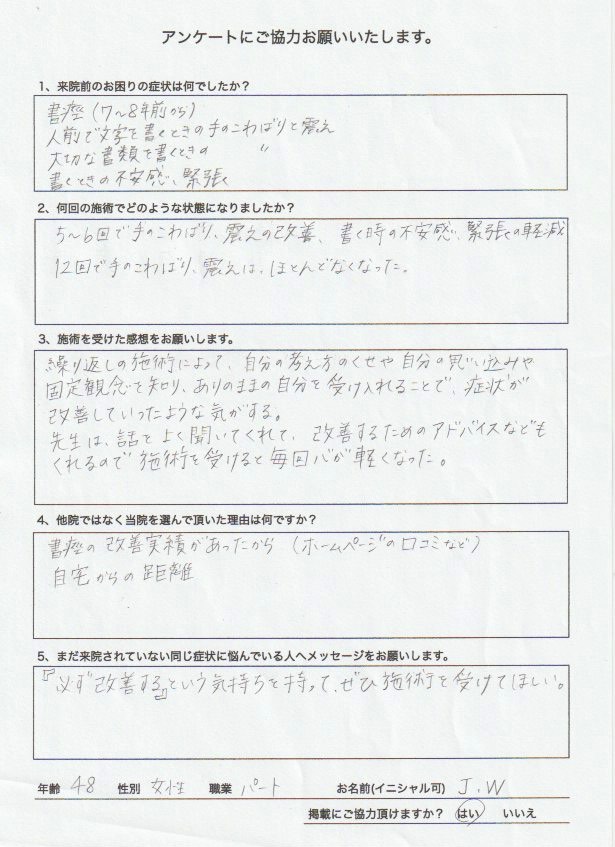 アンケートにご協力お願いいたします。
1、来院前のお困りの症状は何でしたか？
書痙（7〜8年前から）
人前で文字を書くときの手のこわばりと震え
大切な書類を書くときの 〃
書くときの不安感、緊張
2、何回の施術でどのような状態になりましたか？
5〜6回で手のこわばり、震えの改善、書く時の不安感、緊張の軽減
12回で手のこわばり、震えは、ほとんどなくなった。
3、施術を受けた感想をお願いします。
繰り返しの施術によって、自分の考え方のくせや自分の思い込みや
固定観念を知り、ありのままの自分を受け入れることで、症状が
改善していったような気がする。
先生は、話をよく聞いてくれて、改善するためのアドバイスなども
くれるので施術を受けると毎回心が軽くなった。
4、他院ではなく当院を選んで頂いた理由は何ですか？
書痙の改善実績があったから（ホームページの口コミなど）
自宅からの距離
5、まだ来院されていない同じ症状に悩んでいる人へメッセージをお願いします。
『必ず改善する』という気持ちを持って、ぜひ施術を受けてほしい。
年齢 48 性別 女性 職業 パート お名前(イニシャル可) J.W
掲載にご協力頂けますか？ はい いいえ